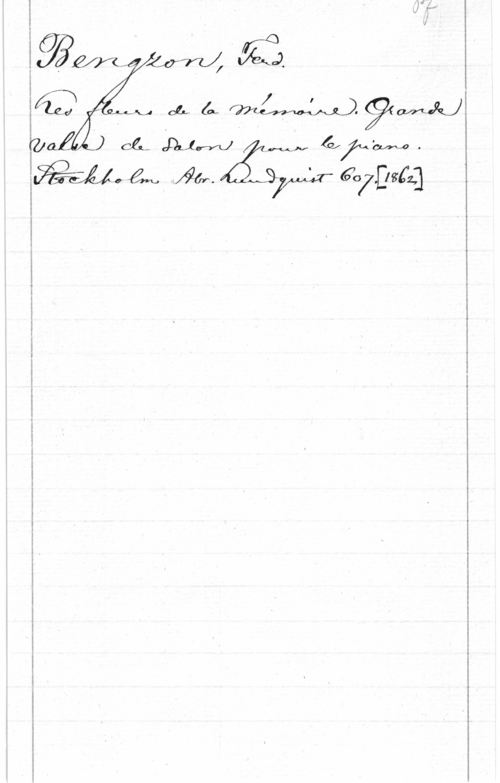 Pf
Bengzon, Ferd.
Les fleurs de la mémoire. Grande
valse de Salon pour le piano.
Stockholm Abr. Lundquist 607. [1862]